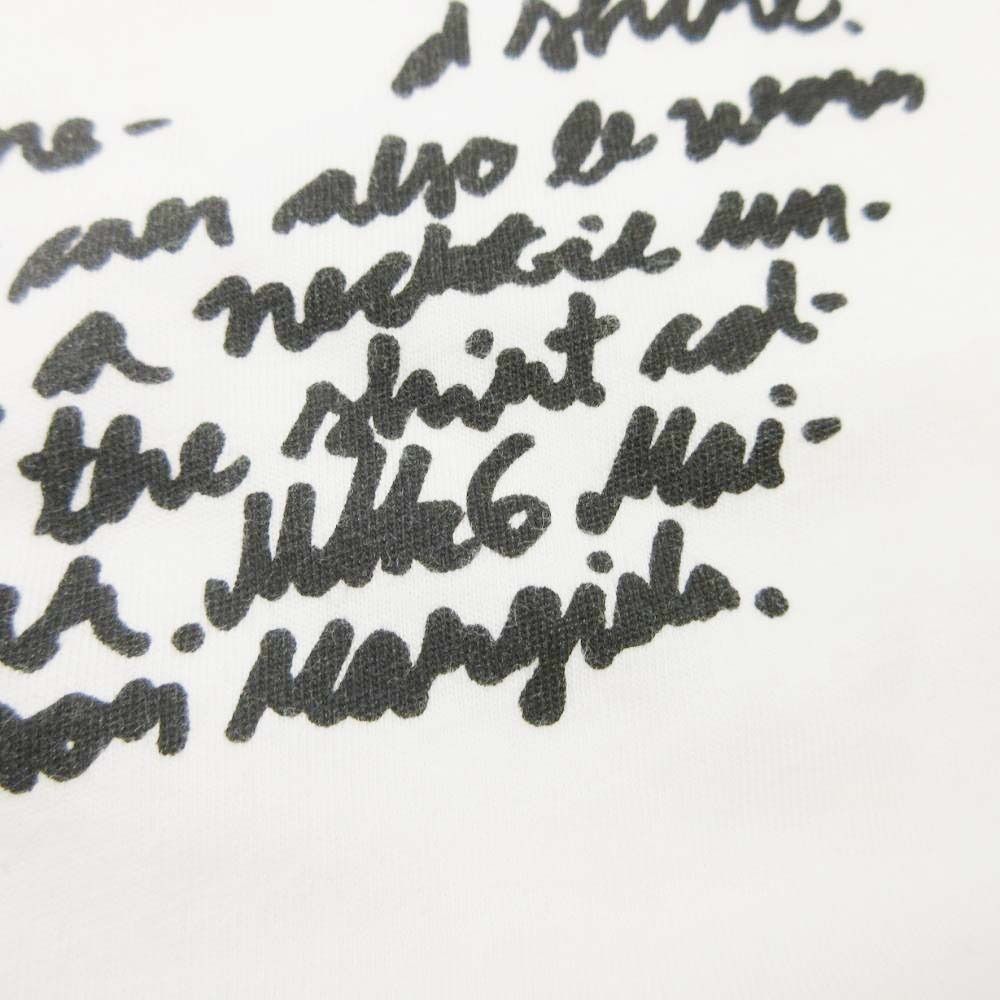 d shirt.
re-
can also be worn
a necktie un-
the shirt col-
ar. MM6 Mai-
son Margiela.